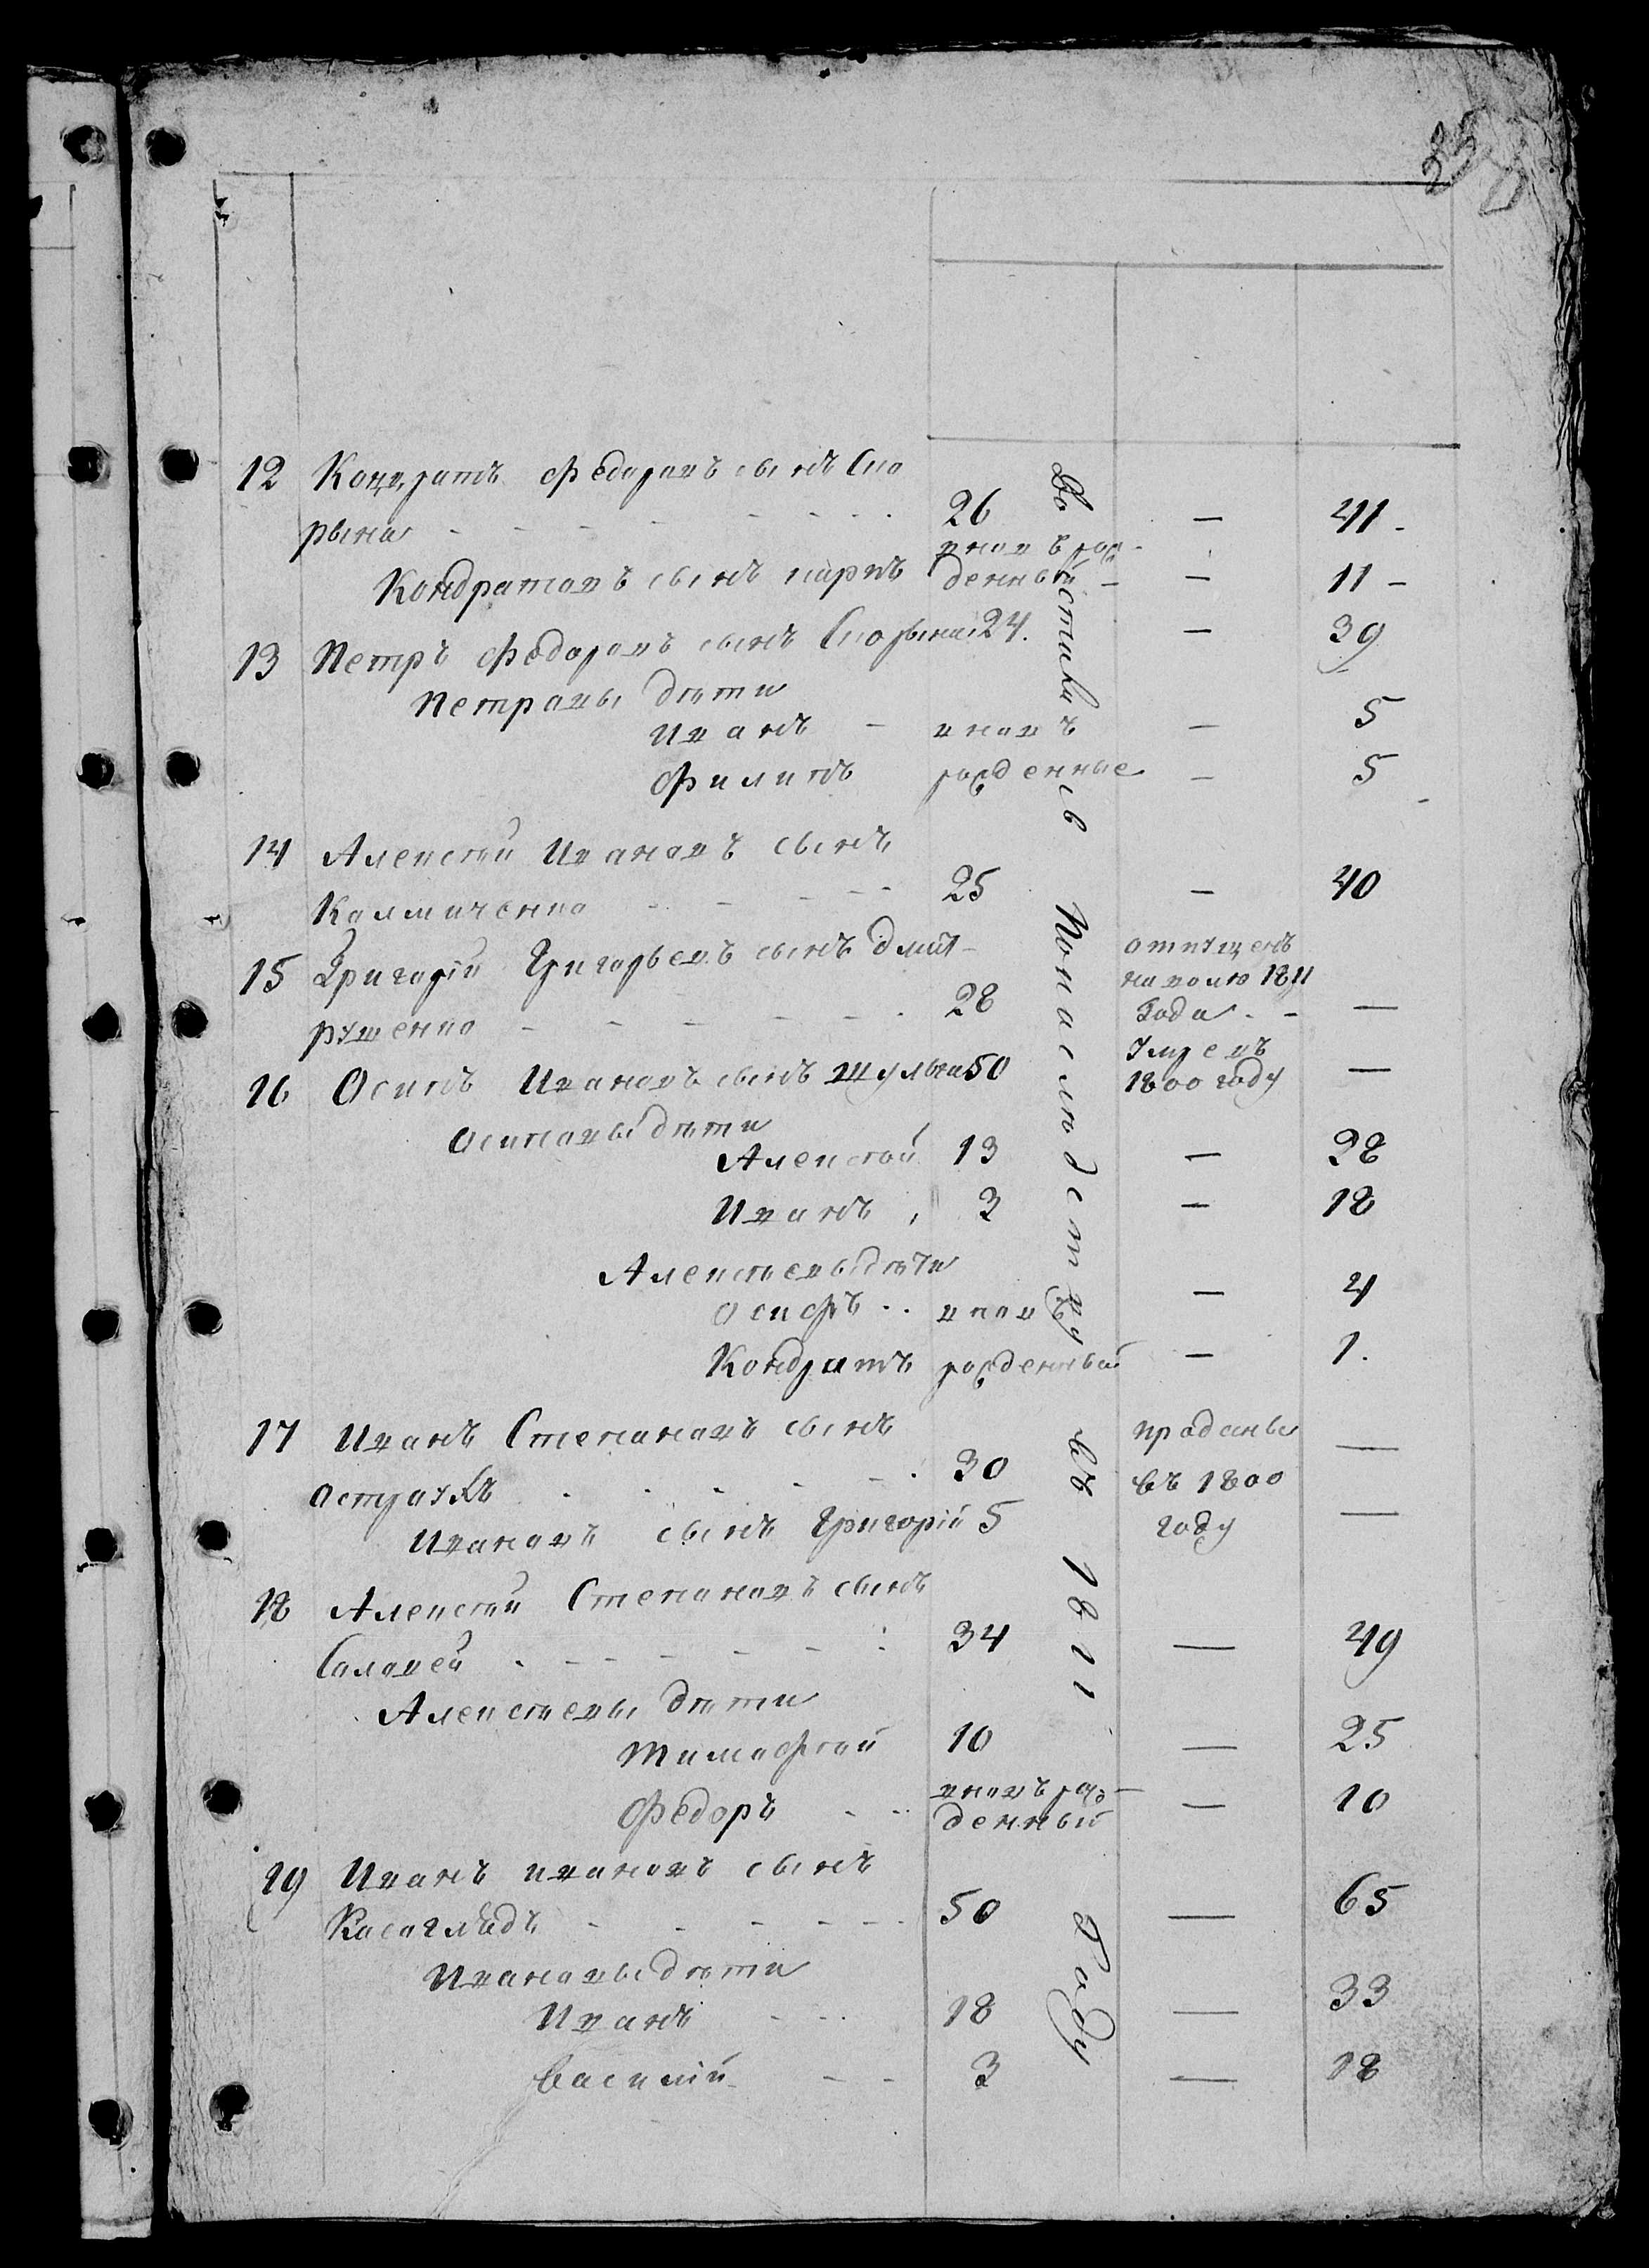 12 Кондратъ Федоровъ сынъ Ско
рына - - - - - - - 26 — 41
Кондратовъ сынъ карпъ вновъ рож
денный — 11
13 Петръ Федоровъ сынъ Скорына 24. — 39
Петровы дѣти
Иванъ - вновъ — 5
Филипъ рожденные — 5
14 Алексѣй Ивановъ сынъ
Калмиченко - - - - 25 — 40
15 Григорій Григорьевъ сынъ дмит-
рушенко - - - - - - 28 отпущенъ
на волю 1811
года - - —
16 Осипъ Ивановъ сынъ шульга 50 Умрешъ
1800 году —
Осиповы дѣти
Алексѣй 13 — 28
Иванъ 3 — 18
Алексѣевы дѣти
Осифъ .. вновъ — 4
Кондратъ рожденный — 1.
17 Иванъ Степановъ сынъ
Остроухъ - - - - - 30 проданы —
въ 1800
Ивановъ сынъ Григорій 5 году —
18 Алексѣй Степановъ сынъ
Соловей - - - - - - 34 — 49
Алексѣевы дѣти
Тимофѣй 10 — 25
Федоръ - - вновъ рож-
денный — 10
19 Иванъ ивановъ сынъ
Косоглядъ - - - - - 50 — 65
Ивановы дѣти
Иванъ - - - 18 — 33
Василій - - 3 — 18
Доставшіесь По наслѣдству въ 1811 Году